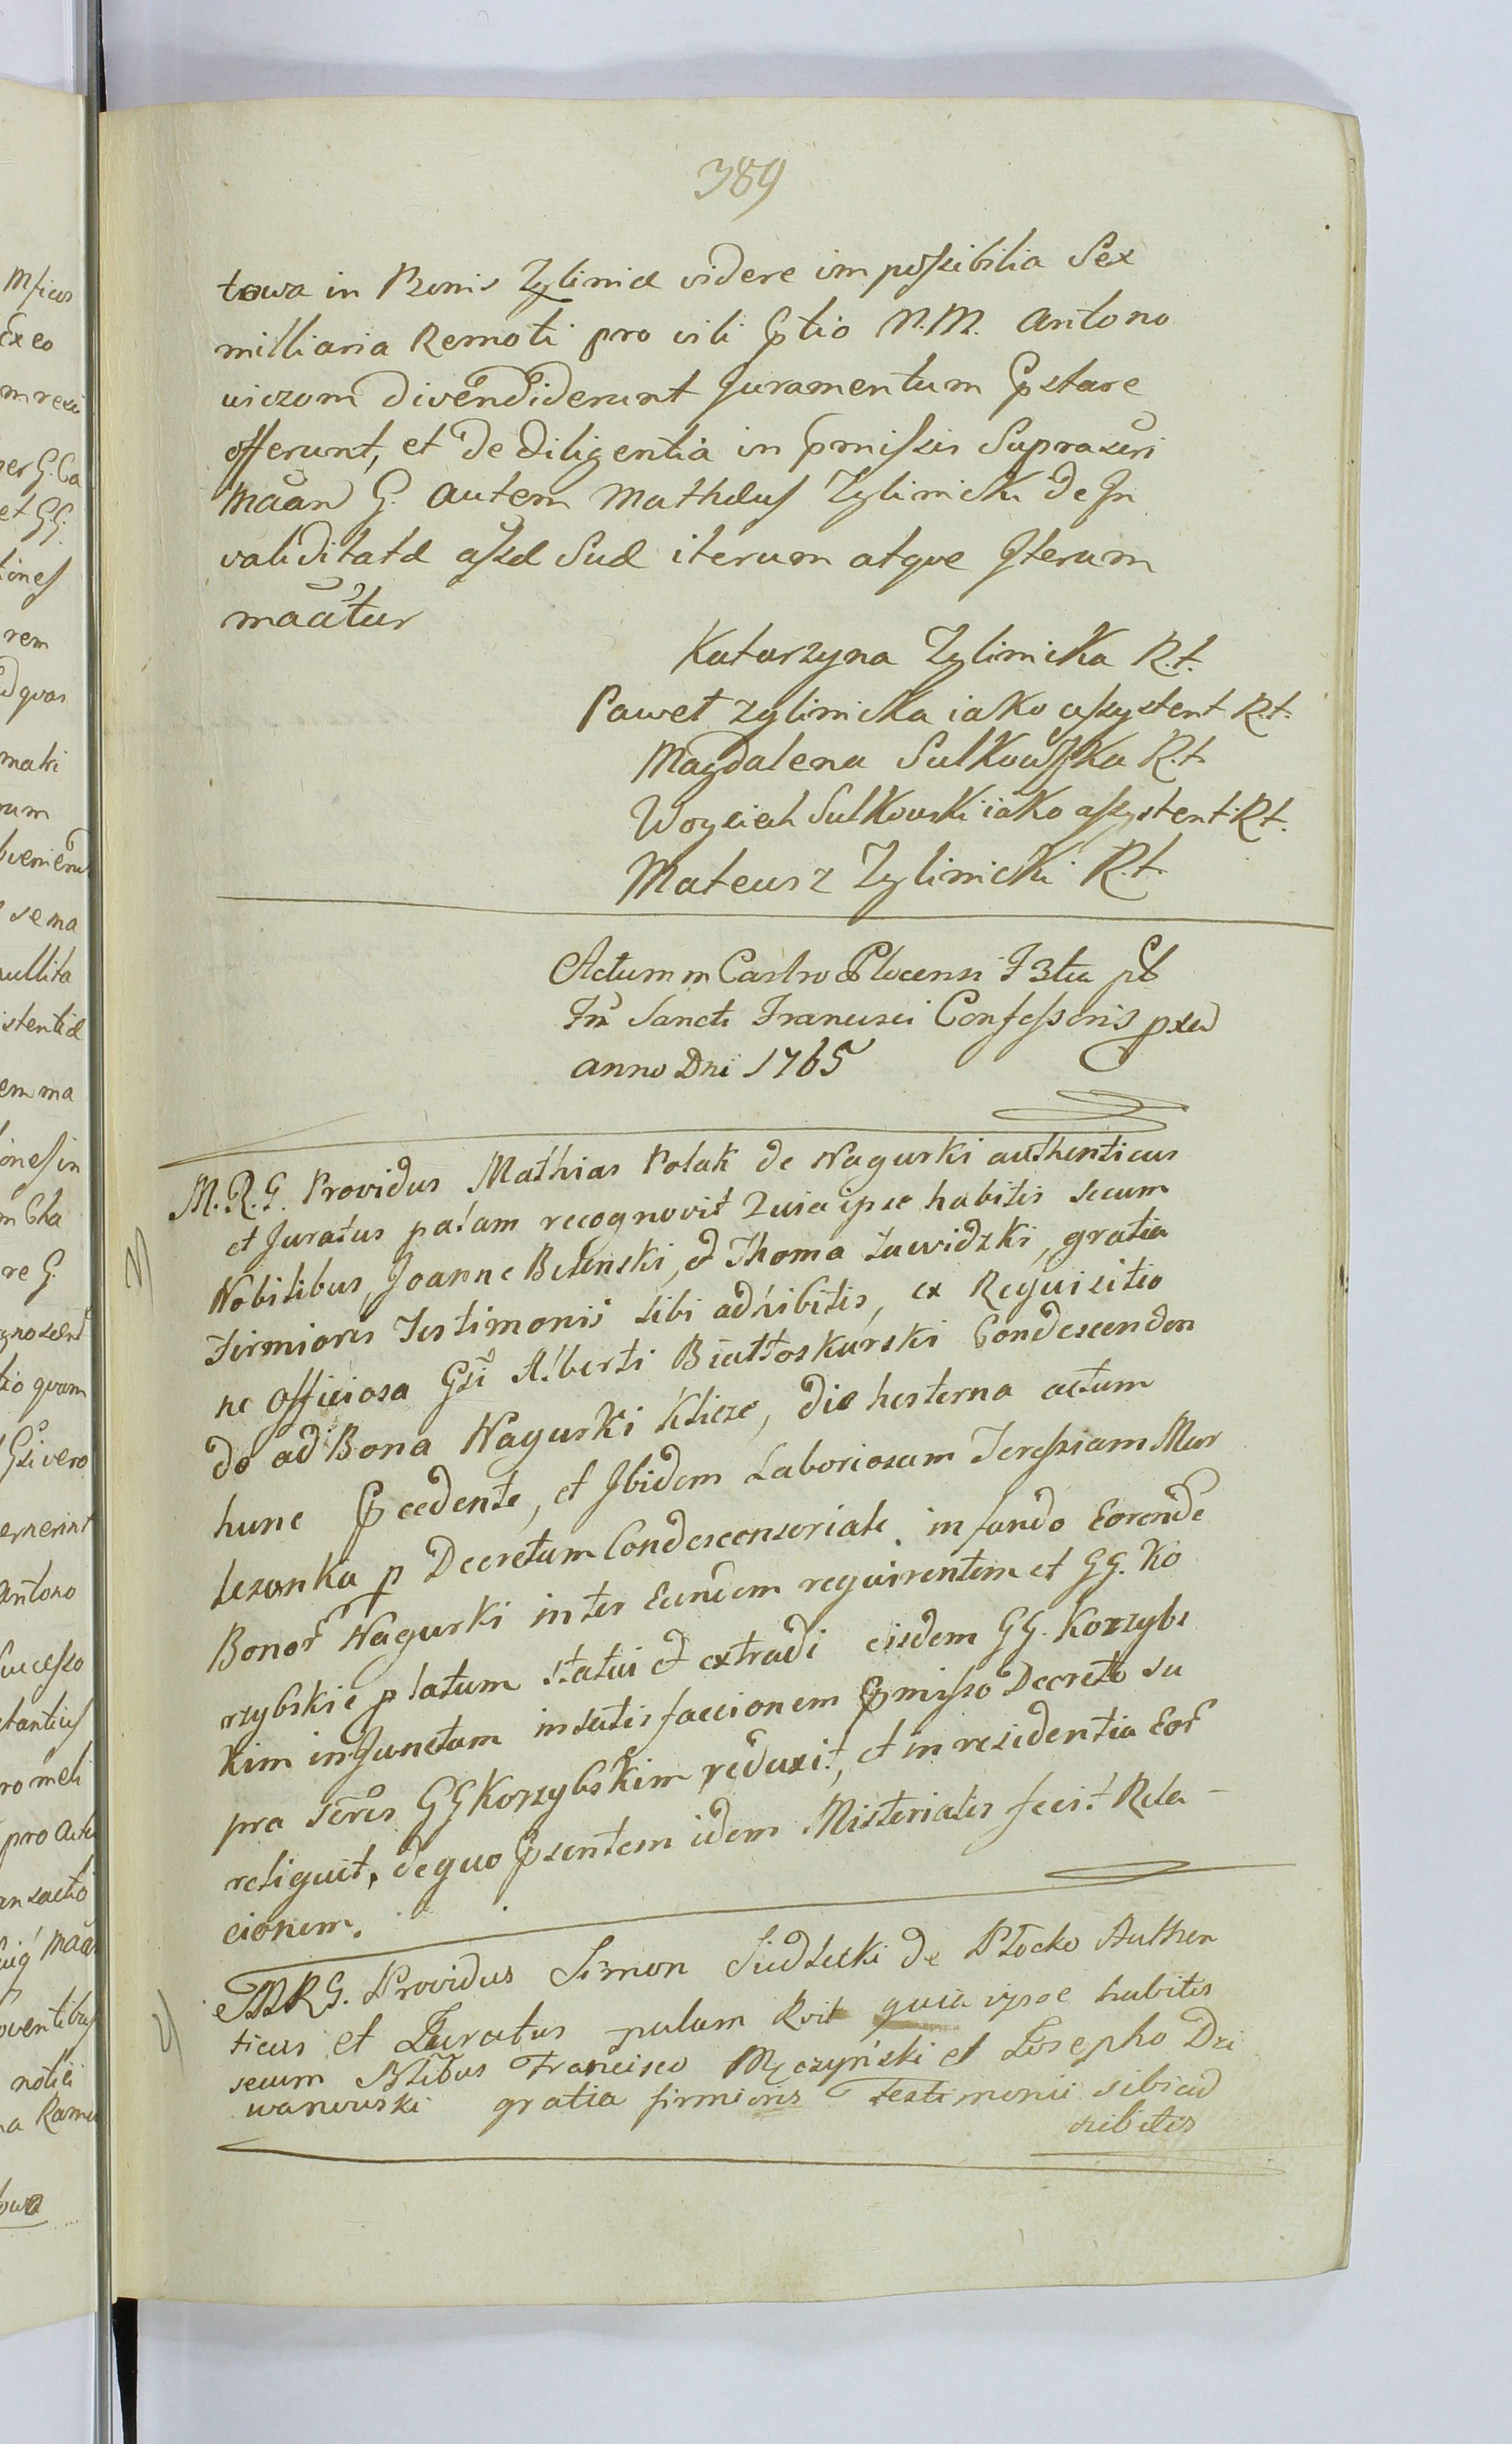 389
towa in Bonis Zglinice videre impossibilia Sex
milliaria Remoti pro vili ꝑtio N.M. Antono
viczom divendiderunt Juramentum ꝑstare
offerunt, et de diligentia in ꝑmissis Suprascri
maan G. autem Mathæus Zglinicki de In
validitatæ assæ Suæ iterum atque Iterum
maatur
Katarzyna Zglinicka R.t.
Paweł Zglinicka iako assystent R.t.
Magdalena Sulkowska R.t
Woyciech Sulkowski iako assystent R.t.
Mateusz Zglinicki R.t.
Actum in Castro Plocensi F 3tia pt
Fm Sancti Francisci Confessoris pxa
anno Dni 1765
M.R.G. Providus Mathias Polak de Nagurki authenticus
et Juratus palam recognovit Quia ipse habitis secum
Nobilibus, Joanne Belenski, et Thoma Zawidzki, gratia
Firmioris Testimonii sibi adhibitis, ex Requisitio
ne officiosa Gsi Alberti Białłoskurski Condescenden
do ad Bona Nagurki Klicze, die hesterna actum
hunc ꝑcedente, et Ibidem Laboriosam Teressiam Mar
lezonka p Decretum Condescensoriale in fundo Eorunde
Bonor Nagurki inter Eundem requirentem et GG. Ko
rzybskie platum statui et extradi eisdem GG. Korzybs
kim injunctam in satisfaccionem ꝑmisso Decreto su
pra scres GG Korzybskim reduxit, et in residentia Eor
reliquit, de quo ꝑsentem idem Misterialis fecit Rela-
cionem.
MRG. Providus Simon Siudlecki de Płocko Authen
ticus et Juratus palam Rvit quia ipse habitis
secum Nlibus Francisco Męczyński et Josepho Dzi
wanowski gratia firmioris Testimonii sibi ad
hibitis